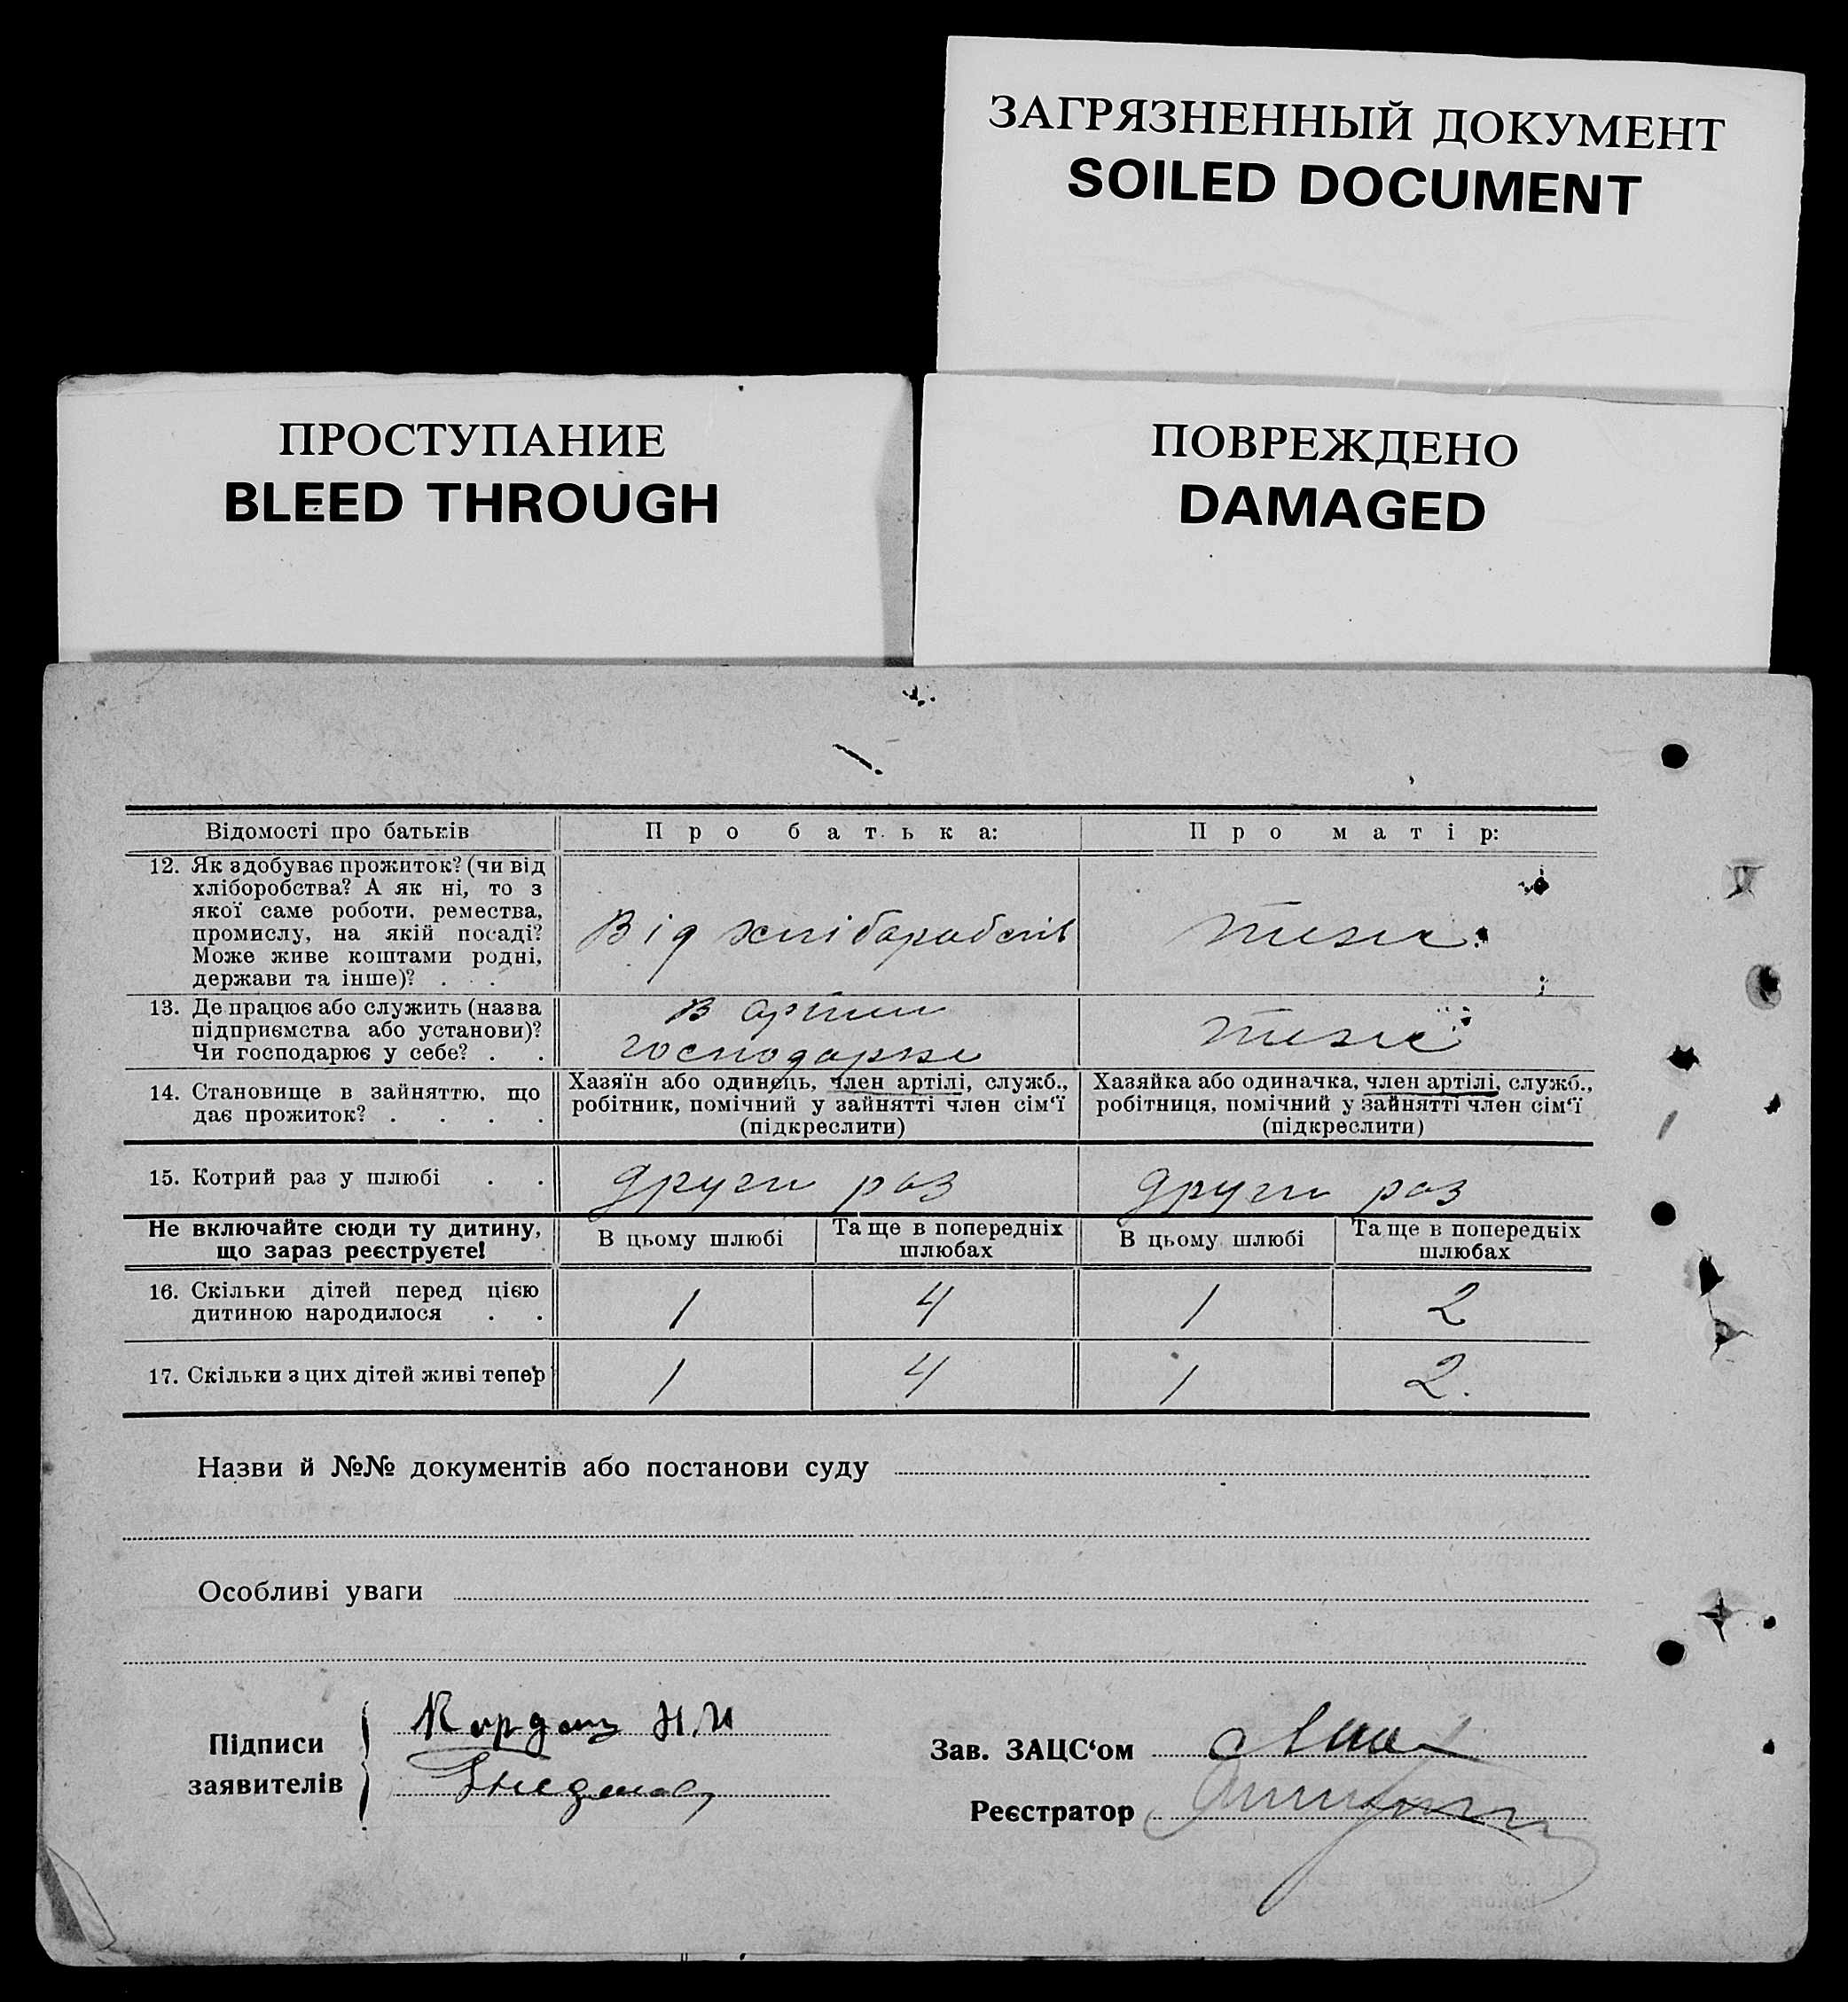 ЗАГРЯЗНЕННЫЙ ДОКУМЕНТ
SOILED DOCUMENT
ПРОСТУПАНИЕ
BLEED THROUGH
ПОВРЕЖДЕНО
DAMAGED
Відомості про батьків
Про батька:
Про матір:
12. Як здобуває прожиток? (чи від
хліборобства? А як ні, то з
якої саме роботи, ремества,
промислу, на якій посаді?
Може живе коштами родні,
держави та інше)? . . .
Від
13. Де працює або служить (назва
підприємства або установи)?
Чи господарює у себе? . .
В
14. Становище в зайняттю, що
дає прожиток? . . . .
Хазяїн або одинець, член артілі, служб.,
робітник, помічний у зайнятті член сім'ї
(підкреслити)
Хазяйка або одиначка, член артілі, служб.,
робітниця, помічний у зайнятті член сім'ї
(підкреслити)
15. Котрий раз у шлюбі . .
други раз
други раз
Не включайте сюди ту дитину,
що зараз реєструєте!
В цьому шлюбі
Та ще в попередніх
шлюбах
В цьому шлюбі
Та ще в попередніх
шлюбах
16. Скільки дітей перед цією
дитиною народилося . .
1
4
1
2
17. Скільки з цих дітей живі тепер
1
4
1
2.
Назви й №№ документів або постанови суду
Особливі уваги
Підписи
заявителів
Н.И
Зав. ЗАЦС'ом
Реєстратор